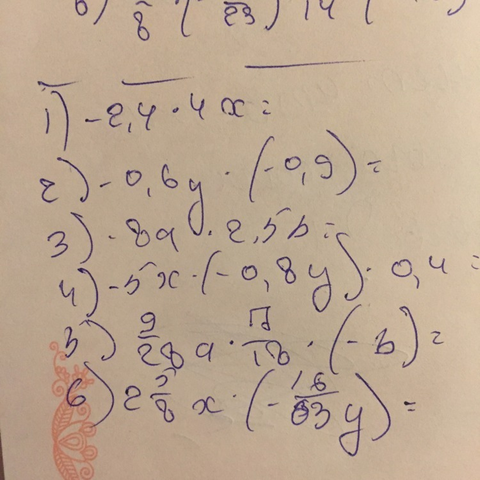 1) -2,4 · 4x =
2) -0,6y · (-0,9) =
3) -8a · 2,5b =
4) -5x · (-0,8y) · 0,4 =
5) 9/28 a · 17/18 · (-b) =
6) 2 5/8 x · (-16/63 y) =